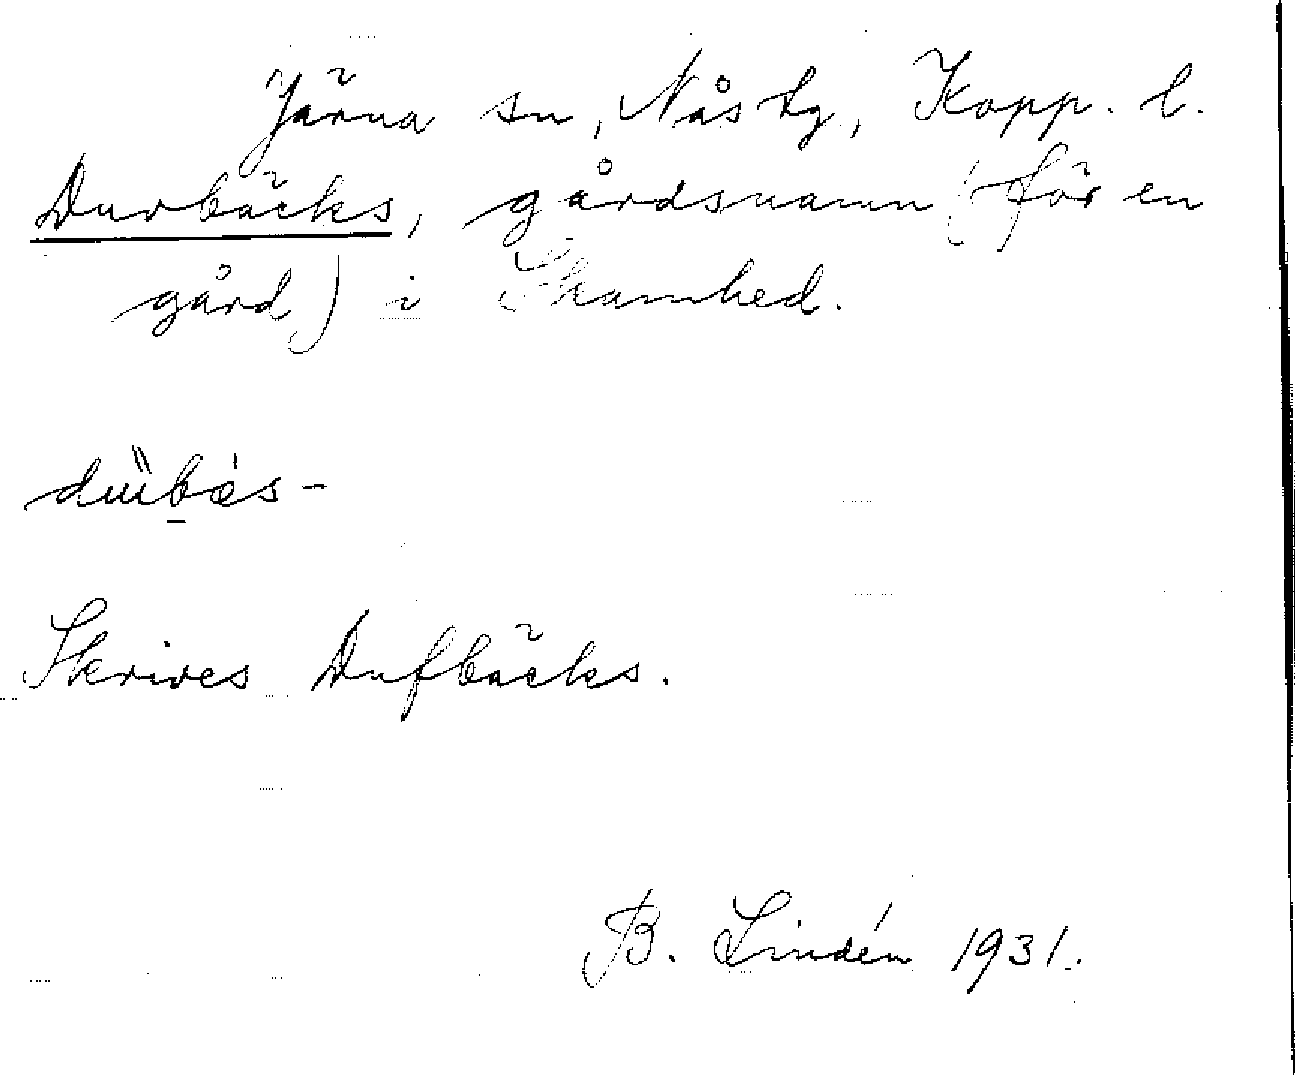 Järna sn, Nås tg, Kopp. l.
Duvbäcks, gårdsnamn (för en
gård) i Skamhed.
Skrives Dufbäcks.
B. Lindén 1931.